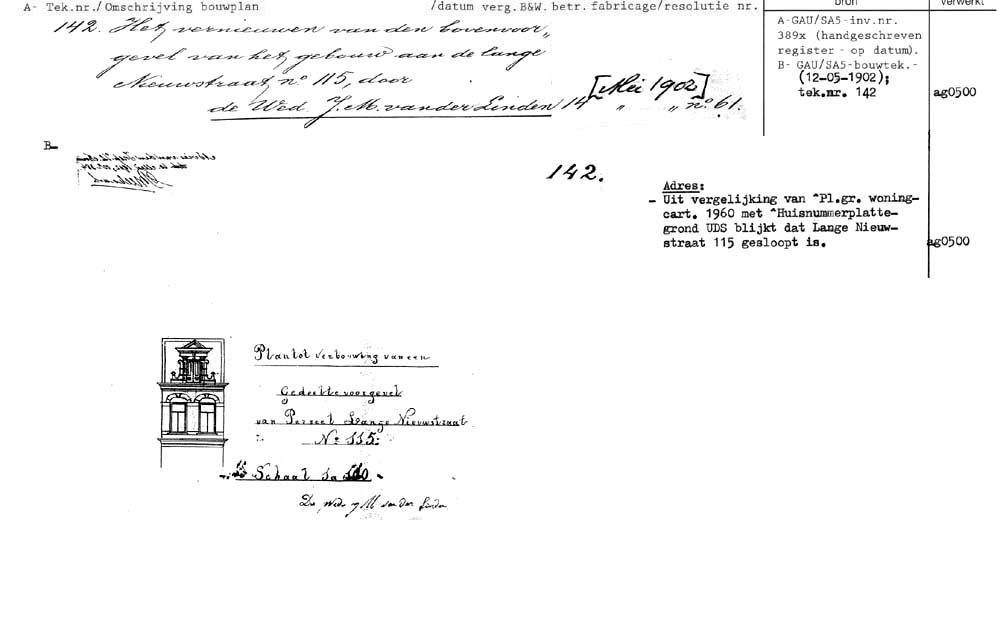 A- Tek.nr./Omschrijving bouwplan /datum verg.B&W. betr. fabricage/resolutie nr. bron verwerkt
142. Het vernieuwen van den bovenvoor„
gevel van het gebouw aan de lange
Nieuwstraat, no 115, door
de Wed J. M. van der Linden 14 „ „ no 61.
[Mei 1902]
A-GAU/SA5-inv.nr.
389x (handgeschreven
register - op datum).
B- GAU/SA5-bouwtek.-
(12-05-1902);
tek.nr. 142 ag0500
B-
142.
Adres:
- Uit vergelijking van ^Pl.gr. woning-
cart. 1960 met ^Huisnummerplatte-
grond UDS blijkt dat Lange Nieuw-
straat 115 gesloopt is. ag0500
Plan tot verbouwing van een
Gedeelte voorgevel
van Perseel Lange Nieuwstraat
No 115:
Schaal
De Wede J M van der Linden